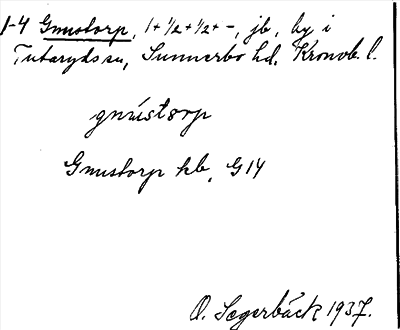 1-4 Gnustorp, 1+½+½+-, jb, by i
Tutaryds sn, Sunnerbo hd. Kronob. l.
gnústorp
Gnustorp kb, G14
O. Segerbäck 1937.